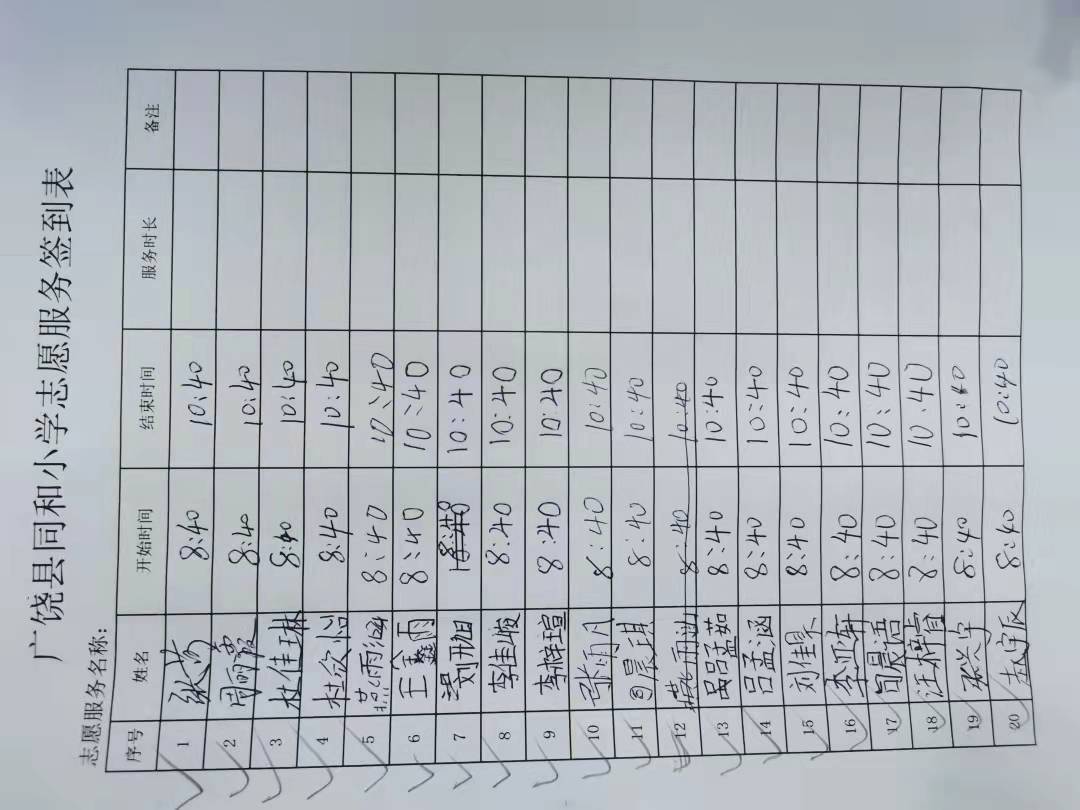 广饶县同和小学志愿服务签到表
志愿服务名称：
序号 姓名 开始时间 结束时间 服务时长 备注
1 张芳 8:40 10:40
2 周丽霞 8:40 10:40
3 杜佳琳 8:40 10:40
4 杜欣怡 8:40 10:40
5 燕雨涵 8:40 10:40
6 王鑫雨 8:40 10:40
7 刘旭 8:40 10:40
8 李佳峻 8:40 10:40
9 李梓瑄 8:40 10:40
10 张明月 8:40 10:40
11 周晨琪 8:40 10:40
12 燕雨涵 8:40 10:40
13 吕孟茹 8:40 10:40
14 吕孟涵 8:40 10:40
15 刘佳昊 8:40 10:40
16 李亚轩 8:40 10:40
17 周晨语 8:40 10:40
18 汪梓萱 8:40 10:40
19 张兴宇 8:40 10:40
20 赵宇辰 8:40 10:40